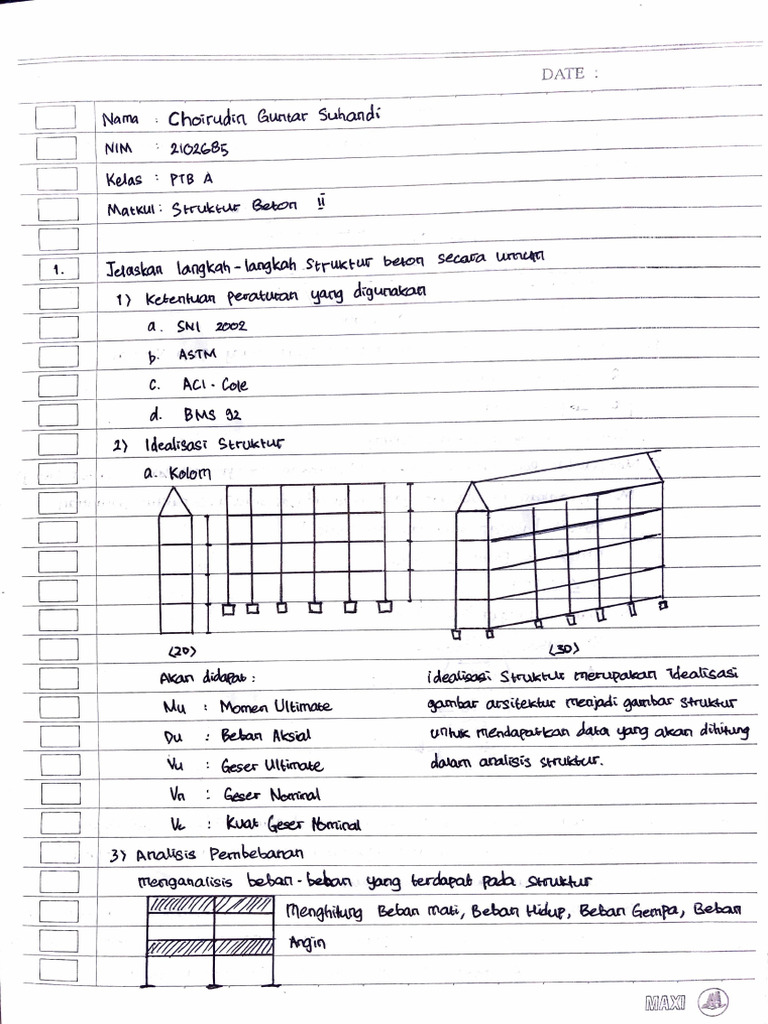 DATE :
Nama : Choirudin Guntar Suhandi
NIM : 2102685
Kelas : PTB A
Matkul : Struktur Beton II
1. Jelaskan langkah-langkah struktur beton secara umum
1) Ketentuan peraturan yang digunakan
a. SNI 2002
b. ASTM
c. ACI - Cole
d. BMS 92
2) Idealisasi Struktur
a. Kolom
(2D)
(3D)
Akan didapat :
Mu : Momen Ultimate
Du : Beban Aksial
Vu : Geser Ultimate
Vn : Geser Nominal
Vc : Kuat Geser Nominal
idealisasi struktur merupakan idealisasi
gambar arsitektur menjadi gambar struktur
untuk mendapatkan data yang akan dihitung
dalam analisis struktur.
3) Analisis Pembebanan
menganalisis beban-beban yang terdapat pada struktur
Menghitung Beban Mati, Beban Hidup, Beban Gempa, Beban
Angin
MAXI